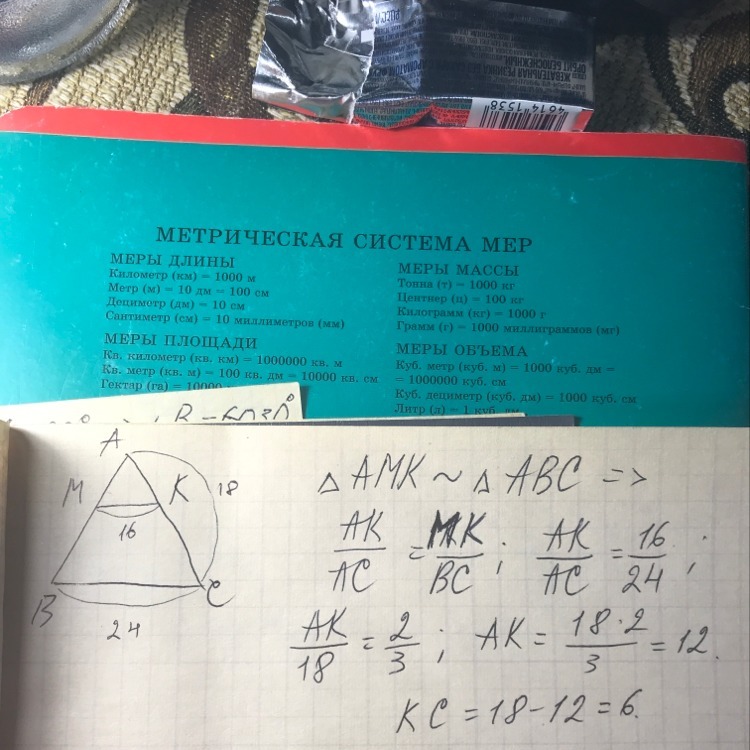 РОССИЯ
ЖЕВАТЕЛЬНАЯ РЕЗИНКА
ОРБИТ БЕЛОСНЕЖНЫЙ
4614 1538
МЕТРИЧЕСКАЯ СИСТЕМА МЕР
МЕРЫ ДЛИНЫ
Километр (км) = 1000 м
Метр (м) = 10 дм = 100 см
Дециметр (дм) = 10 см
Сантиметр (см) = 10 миллиметров (мм)
МЕРЫ ПЛОЩАДИ
Кв. километр (кв. км) = 1000000 кв. м
Кв. метр (кв. м) = 100 кв. дм = 10000 кв. см
Гектар (га) = 10000
МЕРЫ МАССЫ
Тонна (т) = 1000 кг
Центнер (ц) = 100 кг
Килограмм (кг) = 1000 г
Грамм (г) = 1000 миллиграммов (мг)
МЕРЫ ОБЪЕМА
Куб. метр (куб. м) = 1000 куб. дм =
= 1000000 куб. см
Куб. дециметр (куб. дм) = 1000 куб. см
Литр (л) = 1 куб. дм
A
M
K
18
16
B
C
24
△ AMK ~ △ ABC =>
AK/AC = MK/BC ; AK/AC = 16/24 ;
AK/18 = 2/3 ; AK = 18·2/3 = 12.
KC = 18-12 = 6.